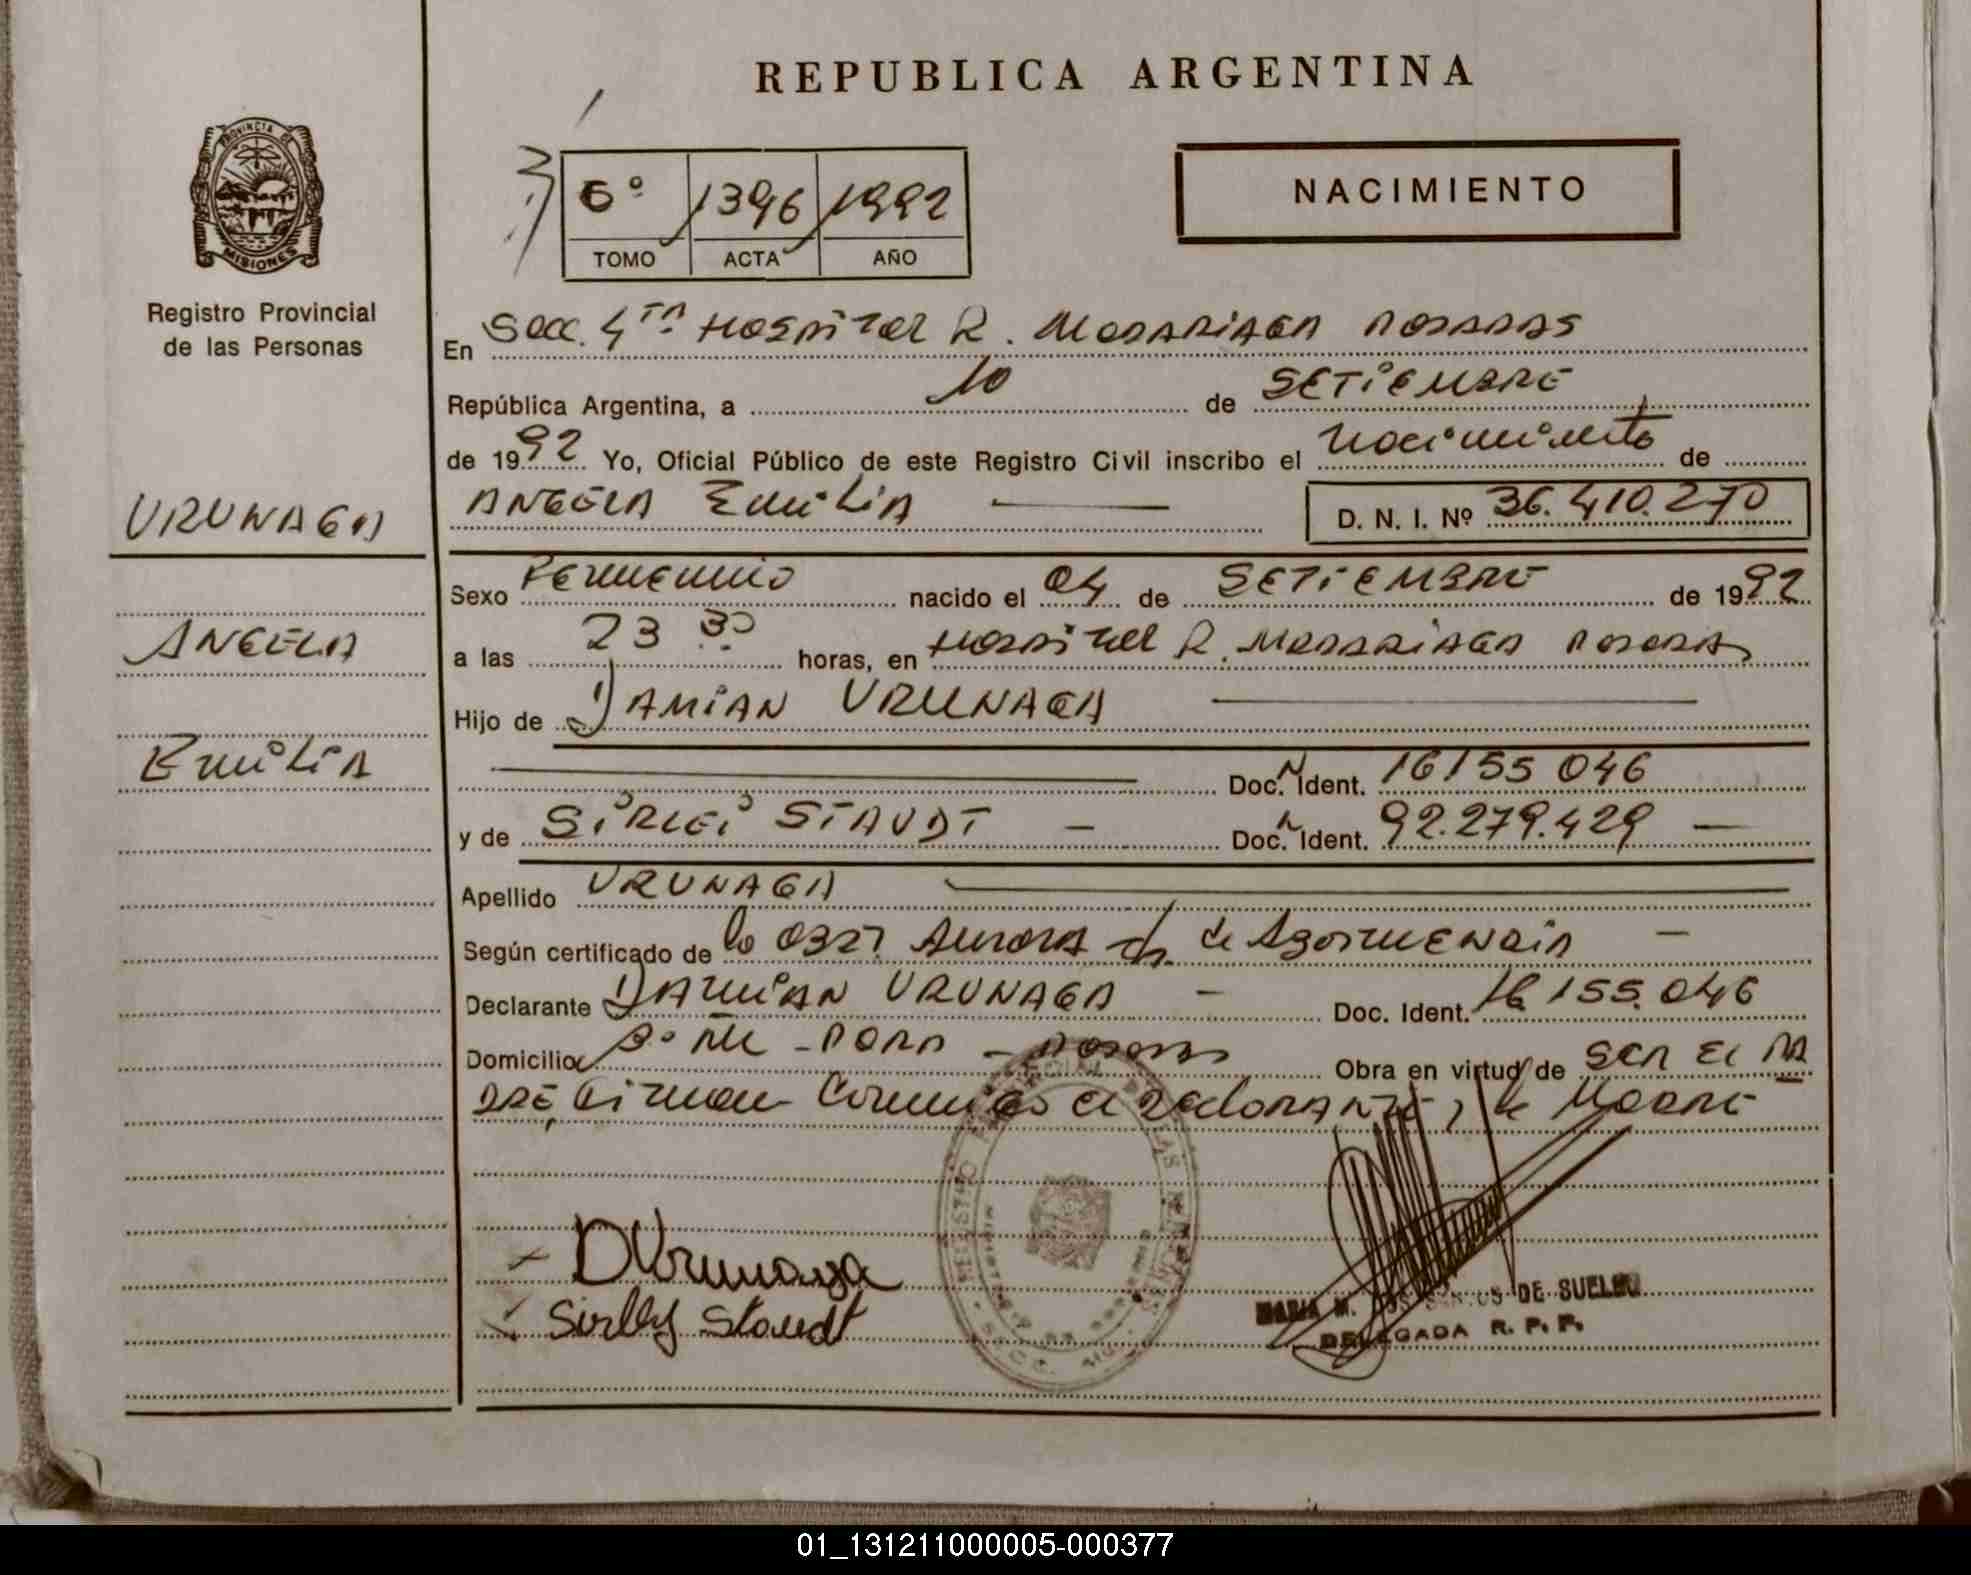 REPUBLICA ARGENTINA
PROVINCIA DE MISIONES
Registro Provincial
de las Personas
6º 1396 1992
TOMO ACTA AÑO
NACIMIENTO
En Secc. 4ta Hospital R. Madariaga Posadas
República Argentina, a 10 de SETIEMBRE
de 1992 Yo, Oficial Público de este Registro Civil inscribo el nacimiento de
ANGELA Emilia D. N. I. Nº 36.410.270
URUNAGA
ANGELA
Emilia
Sexo Femenino nacido el 04 de SETIEMBRE de 1992
a las 23 30 horas, en Hospital R. Madariaga Posadas
Hijo de DAMIAN URUNAGA
Doc. Ident. 16155 046
y de SIRLEI STAUDT - Doc. Ident. 92.279.429 -
Apellido URUNAGA
Según certificado de la Obst. Aurora de -
Declarante DAMIAN URUNAGA - Doc. Ident. 16 155.046
Domicilio - Posadas Obra en virtud de SER EL PA
DRE, Firman el declarante, la Madre
DUrunaga
Sirlly Staudt
MARIA M. DOS SANTOS DE SUELDO
DELEGADA R. P. P.
01_131211000005-000377